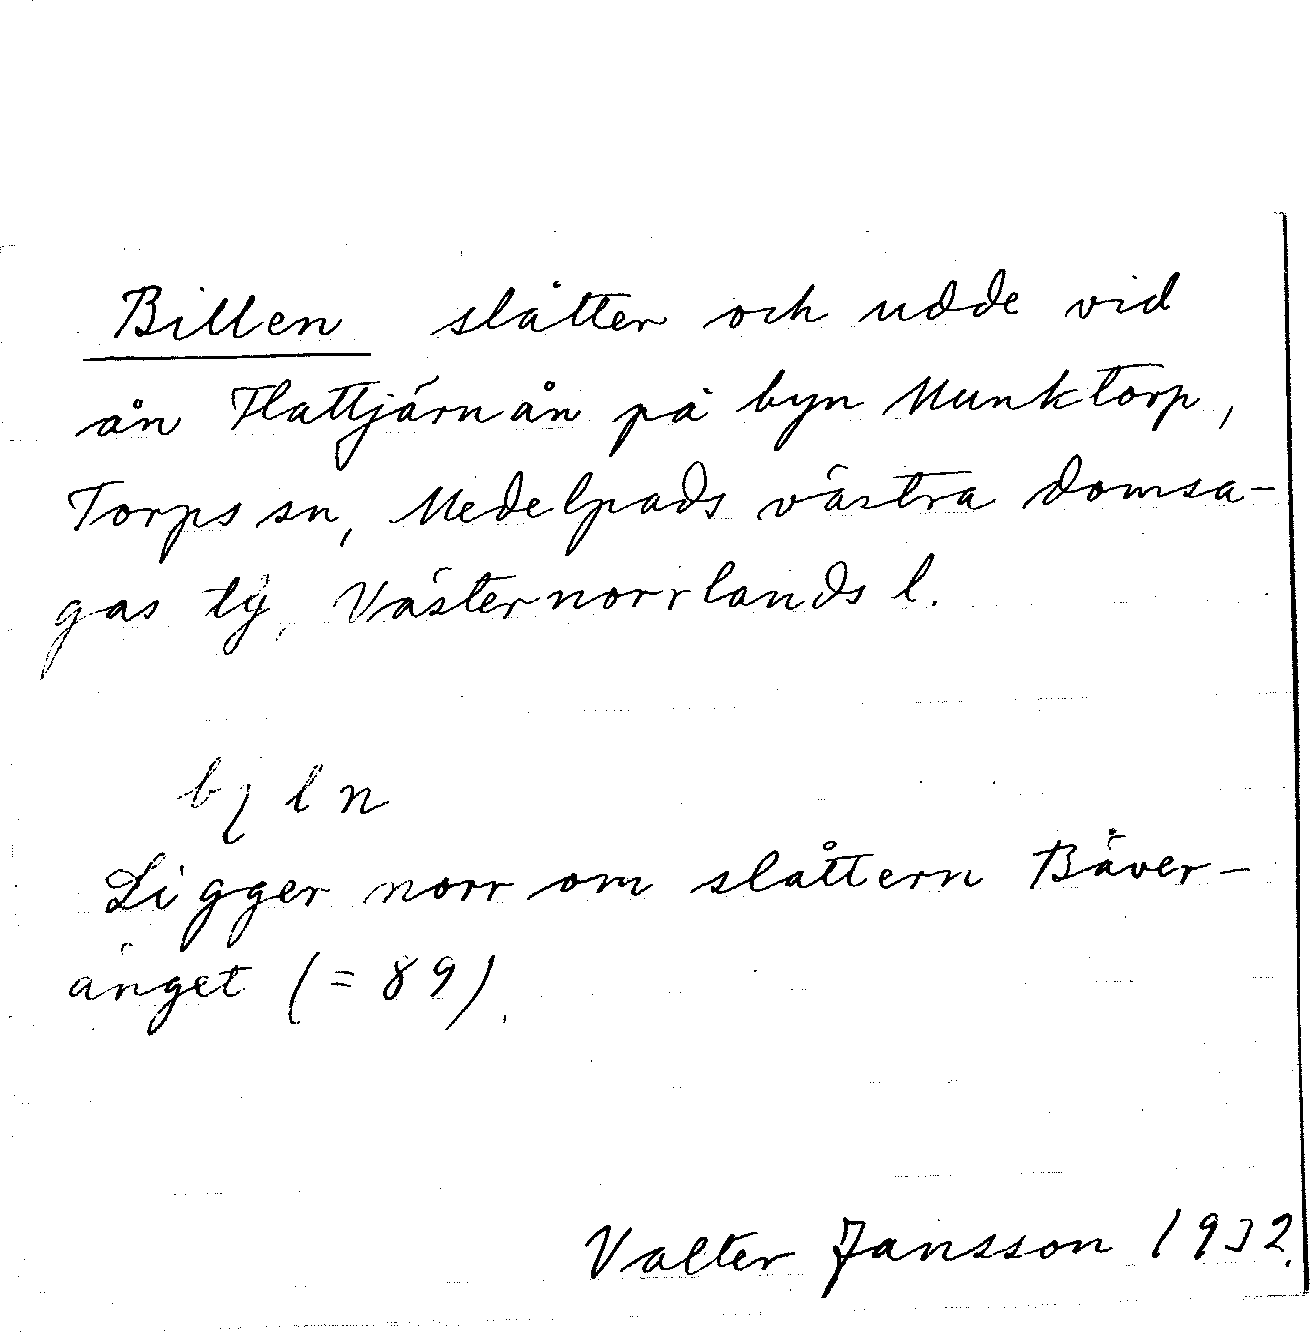 Billen slåtter och udde vid
ån Flattjärnån på byn Munktorp,
Torps sn, Medelpads västra domsa-
gas tg, Västernorrlands l.
Ligger norr om slåttern Bäver-
änget (= 89).
Valter Jansson 1932.